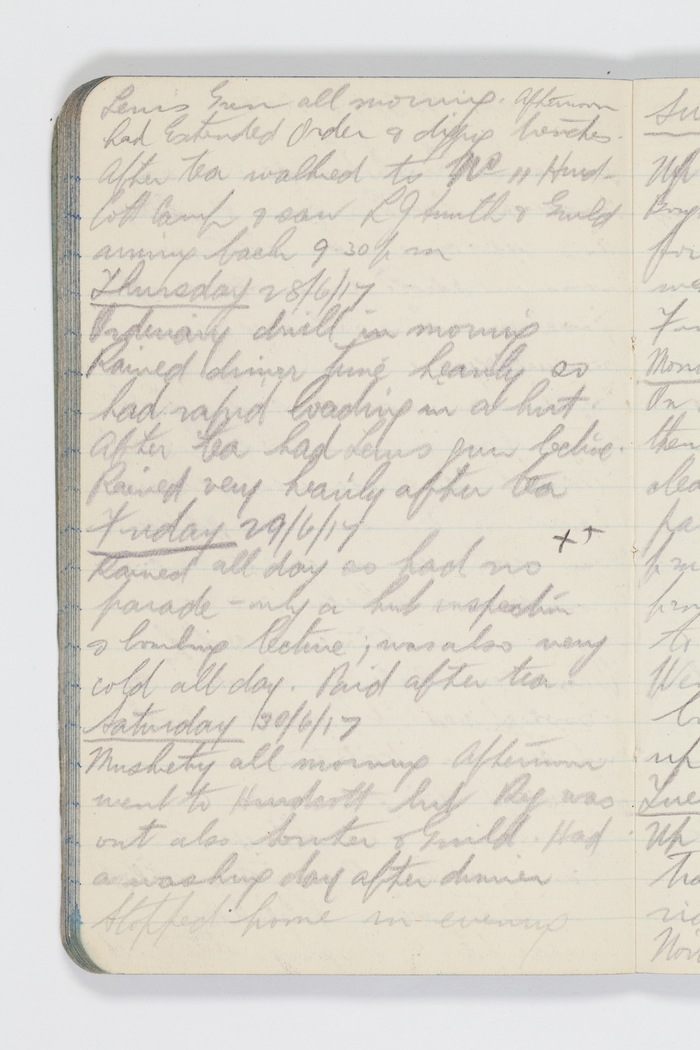 Lewis Gun all morning. Afternoon
had Extended Order & digging trenches.
After tea walked to No 11 Hurd-
cott Camp & saw R J Smith & Guild
arriving back 9-30 p m
Thursday 28/6/17
Ordinary drill in morning
Rained dinner time heavily so
had rapid loading in a hut.
After tea had Lewis gun lecture.
Rained very heavily after tea
Friday 29/6/17
Rained all day so had no
parade - only a hut inspection
& bombing lecture ; was also very
cold all day. Paid after tea.
Saturday 30/6/17
Musketry all morning Afternoon
went to Hurdcott but Reg was
out also Souter & Guild. Had
a washing day after dinner
Stopped home in evening
Up
for
Up